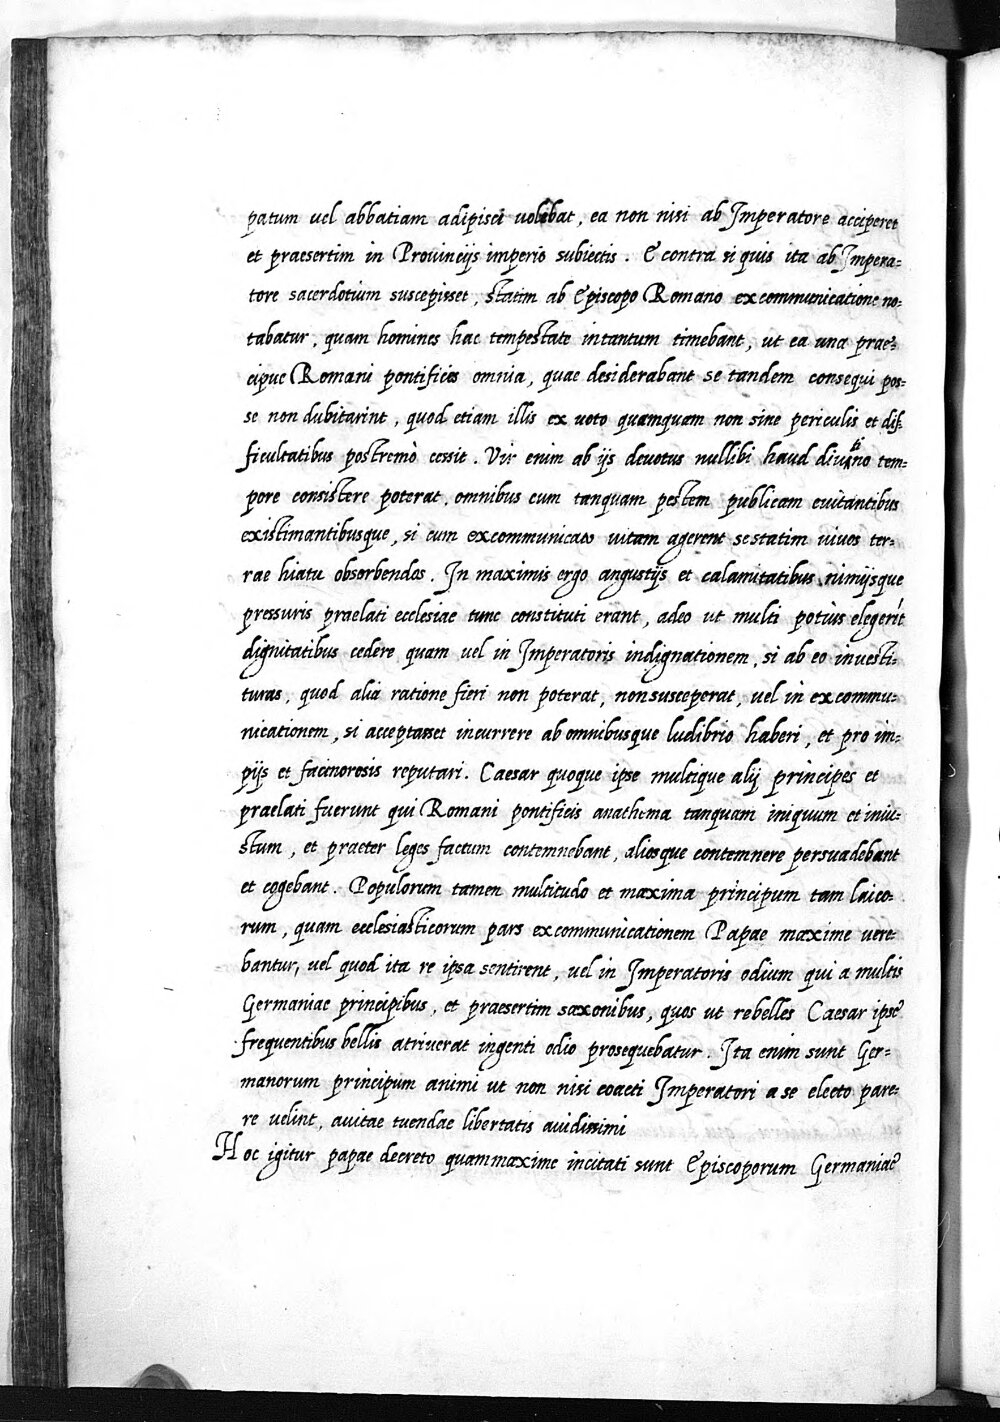 patum vel abbatiam adipisci volebat, ea non nisi ab Imperatore acciperet
et praesertim in Prouincijs imperio subiectis. E contra si quis ita ab Impera=
tore sacerdotium suscepisset, statim ab Episcopo Romano excommunicatione no=
tabatur, quam homines hac tempestate intantum timebant, ut ea una prae=
cipue Romani pontifices omnia, quae desiderabant se tandem consequi pos=
se non dubitarint, quod etiam illis ex uoto quamquam non sine periculis et dif=
ficultatibus postremò cessit. Vir enim ab ijs deuotus nullibi haud diutino tem=
pore consistere poterat, omnibus eum tanquam pestem publicam euitantibus
existimantibusque, si cum excommunicato uitam agerent se statim uiuos ter=
rae hiatu obsorbendos. In maximis ergo angustijs et calamitatibus nimijsque
pressuris praelati ecclesiae tunc constituti erant, adeo ut multi potius elegerĩt
dignitatibus cedere quam uel in Imperatoris indignationem, si ab eo inuesti=
turas, quod alia ratione fieri non poterat, non susceperat, uel in excommu=
nicationem, si acceptasset incurrere ab omnibusque ludibrio haberi, et pro im=
pijs et facinorosis reputari. Caesar quoque ipse multique alij principes et
praelati fuerunt qui Romani pontificis anathema tanquam iniquum et iniu=
stum, et praeter leges factum contemnebant, aliosque contemnere persuadebant
et cogebant. Populorum tamen multitudo et maxima principum tam laico=
rum, quam ecclesiasticorum pars excommunicationem Papae maxime uere=
bantur, uel quod ita re ipsa sentirent, uel in Imperatoris odium qui a multis
Germaniae principibus, et praesertim saxonibus, quos ut rebelles Caesar ipse
frequentibus bellis atriuerat ingenti odio prosequebatur. Ita enim sunt Ger=
manorum principum animi ut non nisi coacti Imperatori a se electo pare=
re uelint, auitae tuendae libertatis auidissimi
Hoc igitur papae decreto quammaxime incitati sunt Episcoporum Germaniae